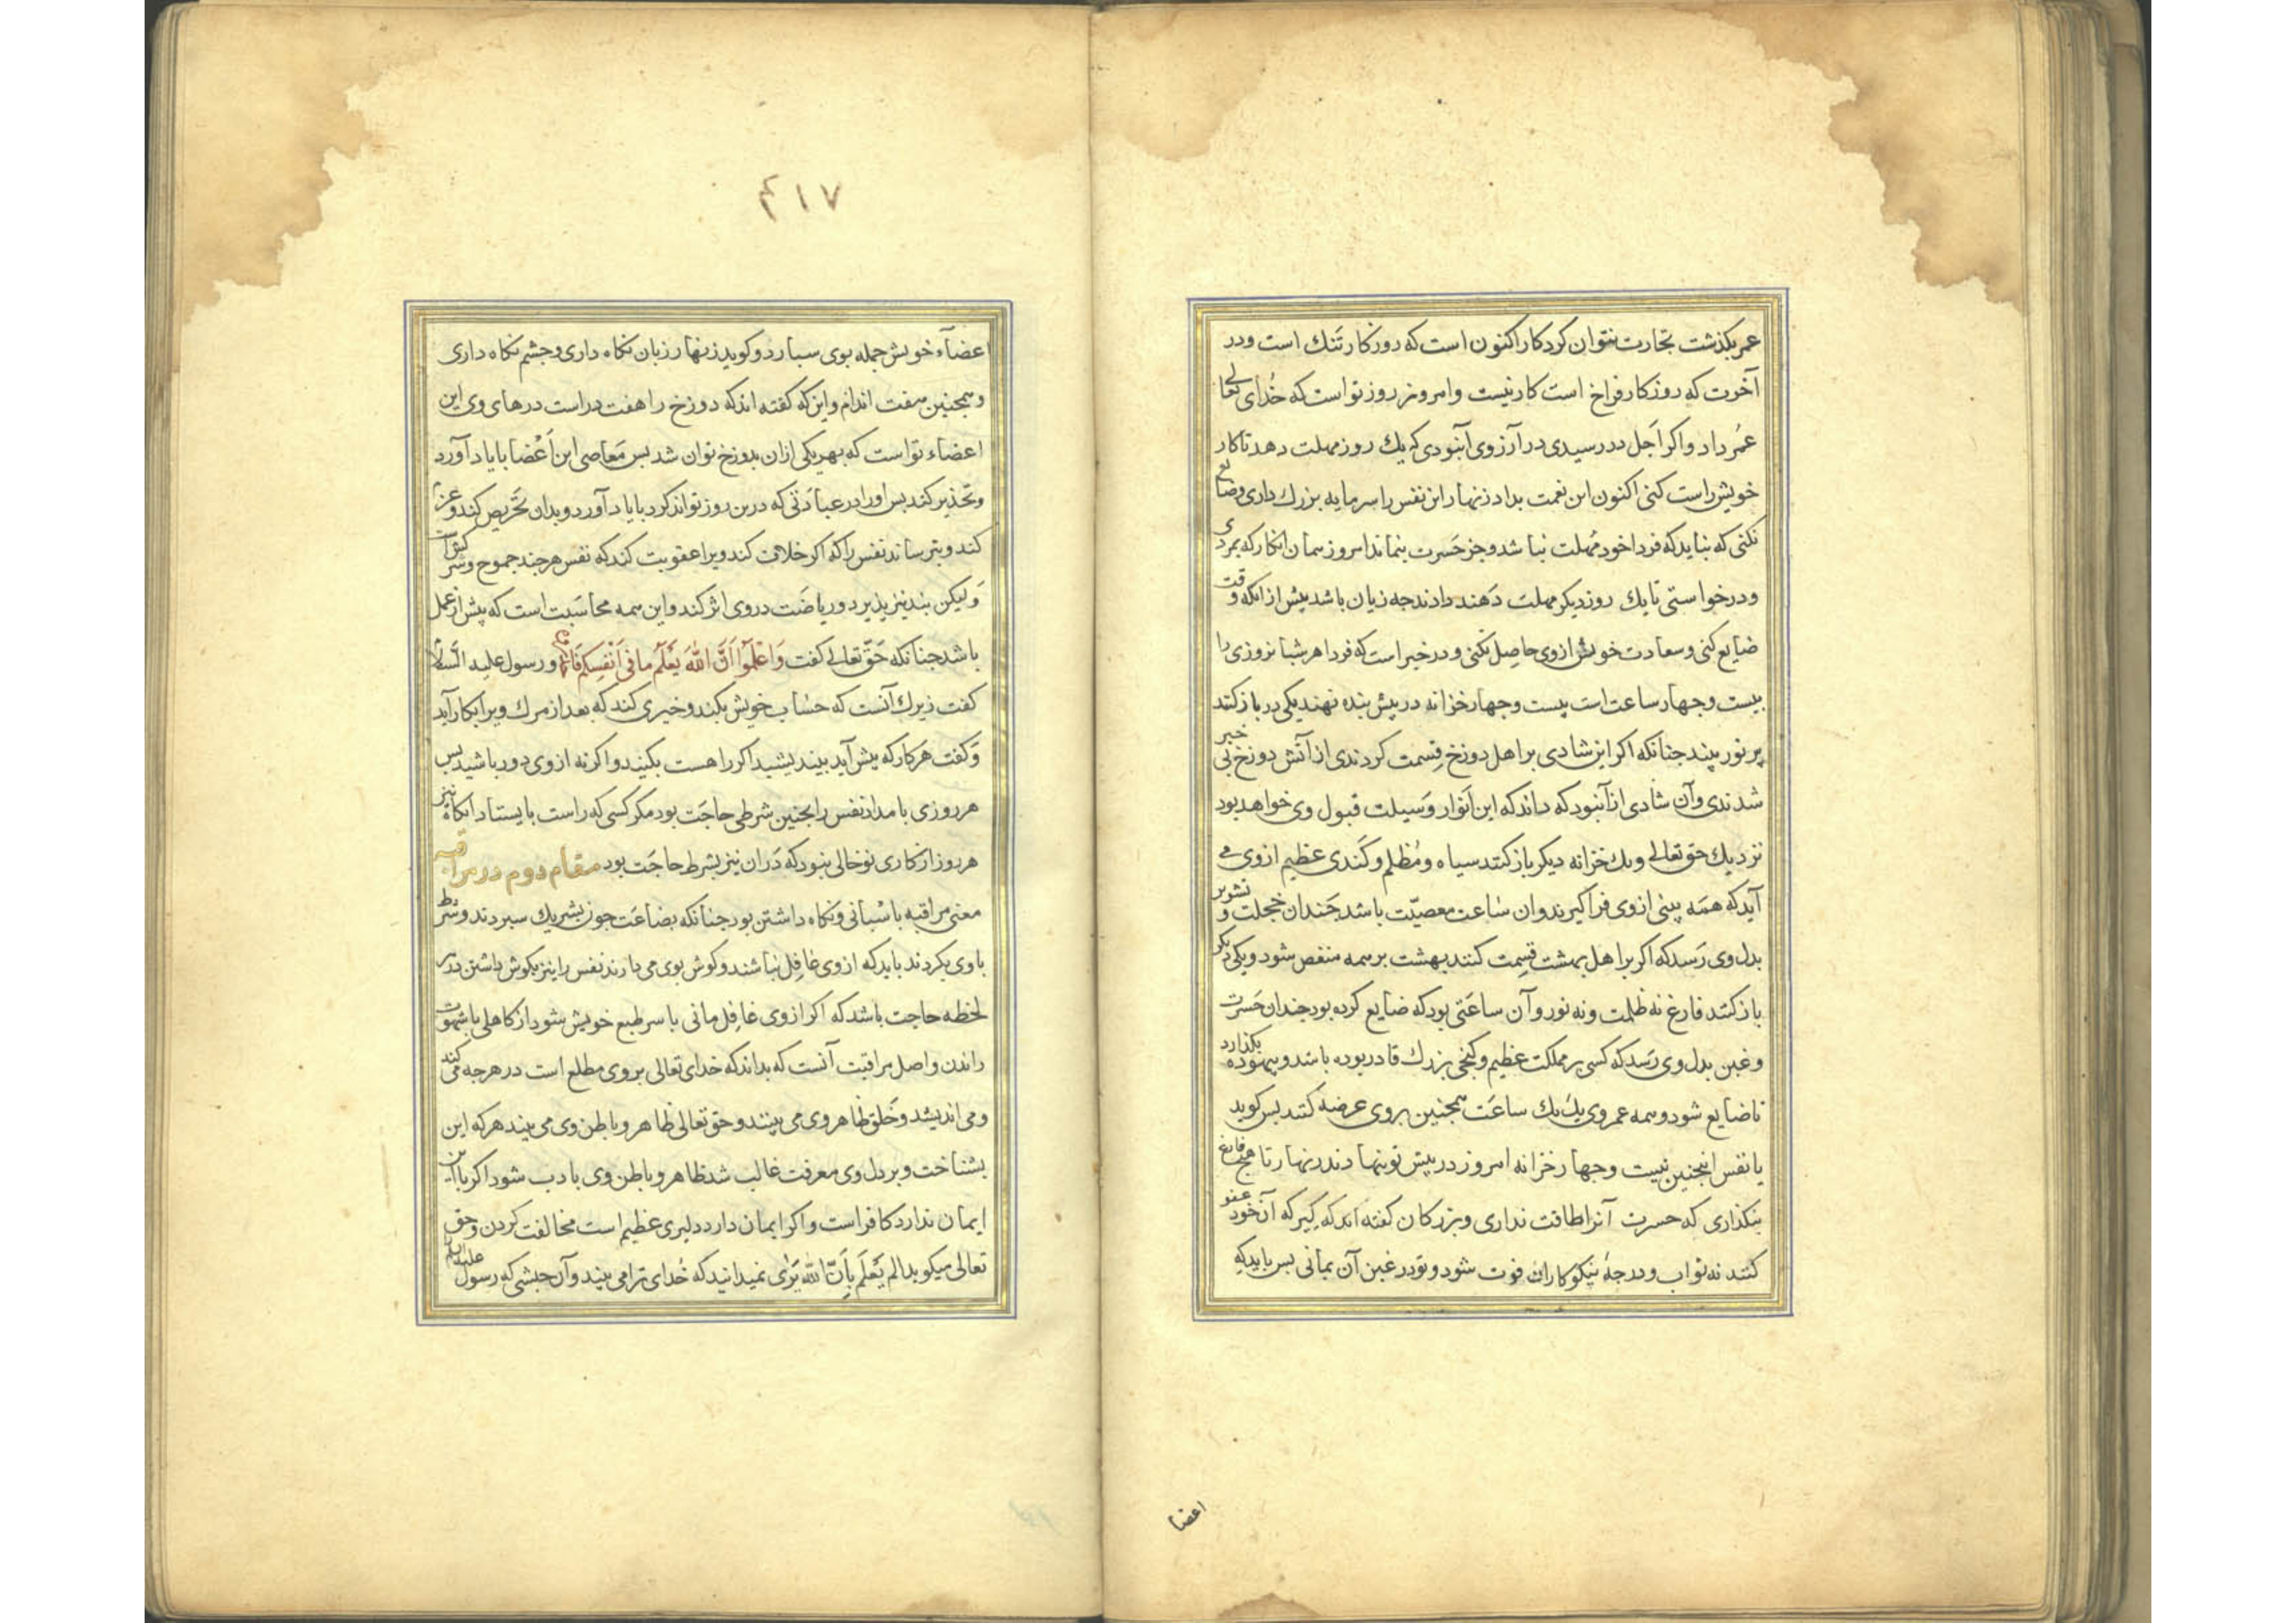 عمر بكذشت تجارت نتوان كرد كار اكنون است كه روزكار تنك است ودر
آخرت كه روزكار فراخ است كار نيست وامروز روز تو است كه خُداى تعالى
عُمر داد واكر اَجَل در رسيدى در آرزوى آن بودى كه يك روز مهلت دهد تا كار
خويش راست كنى اكنون اين نعمت بداد زنهار اين نفس را سرمايه بزرك دارى وضايع
نكنى كه نبايد كه فردا خود مُهلت نباشد وجز حَسرت بنماند امروز همان انكار كه بمردى
ودرخواستى تا يك روز ديكر مهلت دَهند دادند جه زيان باشد بيش از انكه وقت
ضايع كنى وسعادت خويش ازوى حاصِل نكنى ودر خبر است كه فردا هر شبانروزى را
بيست وجهار ساعت است بيست وجهار خزانه در پيش بنده نهند يكى در باز كنند
پر نور بيند جنانكه اكر اين شادى بر اهل دوزخ قِسمت كردندى از آتش دوزخ بى خبر
شدندى وآن شادى از آن بود كه داند كه اين اَنوار وَسيلت قبول وى خواهد بود
نزديك حق تعالى ويك خزانه ديكر باز كنند سياه ومُظلم وكَندى عظيم ازوى مى
آيد كه همَه بينى ازوى فرا كيرند وان ساعت معصيّت باشد جَندان خجلت وتشوير
بدل وى رَسد كه اكر بر اهل بهشت قِسمت كنند بهشت بر همه منغص شود ويكى ديكر
باز كنند فارغ نه ظلمت ونه نور وآن ساعَتى بود كه ضايع كرده بود جندان حَسرت
وغبن بدل وى رَسد كه كسى بر مملكت عظيم وكنجى بزرك قادر بوده باشد وبيهوده بكذارد
تا ضايع شود وهمه عمر وى يك يك ساعَت همجنين بر وى عرضه كنند بس كويد
يا نفس اينجنين بيست وجهار خزانه امروز در پيش تو بنهادند زنهار تا هيج فارغ
بنكذارى كه حسرت آنرا طاقت ندارى وبزركان كفته اند كه كير كه آن خود عفو
كنند نه ثواب ودرجهٔ نيكوكاران فوت شود وتو در غبن آن بمانى بس بايد كه
اعضا
۴۱۷
اعضآء خويش جمله بوى سبارد وكويد زنهار زبان نكاه دارى وجشم نكاه دارى
وهمجنين هفت اندام واين كه كفته اند كه دوزخ را هفت در است درهاى وى اين
اعضاء تو است كه بهر يكى ازان بدوزخ توان شد بس مَعاصى اين اَعْضا با ياد آورد
وتحذير كند بس اورا در عبادَتى كه درين روز تواند كرد با ياد آورد وبدان تحَريص كند وعزم
كند وبترساند نفس را كه اكر خلاف كند ويرا عقوبت كند كه نفس هر جند جموح وسركش است
وَليكن بند نيز پذيرد ورياضَت در وى اثر كند واين همه محاسَبت است كه پيش از عمل
باشد جنانكه حَق تعالى كفت وَاعْلَمُوٓا اَنَّ اللهَ يَعْلَمُ ما فى اَنْفُسِكُم فَاحْذَرُوهُ ورسول عليه السَّلام
كفت زيرك آنست كه حساب خويش بكند وخيرى كند كه بعد از مرك ويرا بكار آيد
وَكفت هَر كار كه پيش آيد بينديشيد اكر راهست بكنيد واكر نه از وى دور باشيد بس
هر روزى بامداد نفس را بجنين شرطى حاجَت بود مكر كسى كه راست بايستاد انكاه نيز
هر روز از كارى نو خالى نبود كه دَران نيز بشرط حاجَت بود مقام دوم در مراقبه
معنى مراقبه باسْبانى ونكاه داشتن بود جنانكه بضاعَت جون بشريك سبردند وشرط
با وى بكردند بايد كه از وى غافِل نباشند وكوش بوى مى دارند نفس را نيز بكوش داشتن در هر
لحظه حاجت باشد كه اكر از وى غافِل مانى با سر طبع خويش شود از كاهلى يا شهوت
راندن واصل مراقبت آنست كه بداند كه خداى تعالى بر وى مطلع است در هرجه مى كند
ومى انديشد وخَلق ظاهر وى مى بينند وحق تعالى ظاهر وباطن وى مى بيند هر كه اين
بشناخت وبر دل وى معرفت غالب شد ظاهر وباطن وى بادب شود اكر با اين
ايمان ندارد كافر است واكر ايمان دارد دليرى عظيم است مخالفت كردن وحق
تعالى ميكويد الم يَعْلَم بِاَنّ الله يَرٰى نميدانيد كه خُداى ترا مى بيند وآن حبشى كه رسول عليه السلم